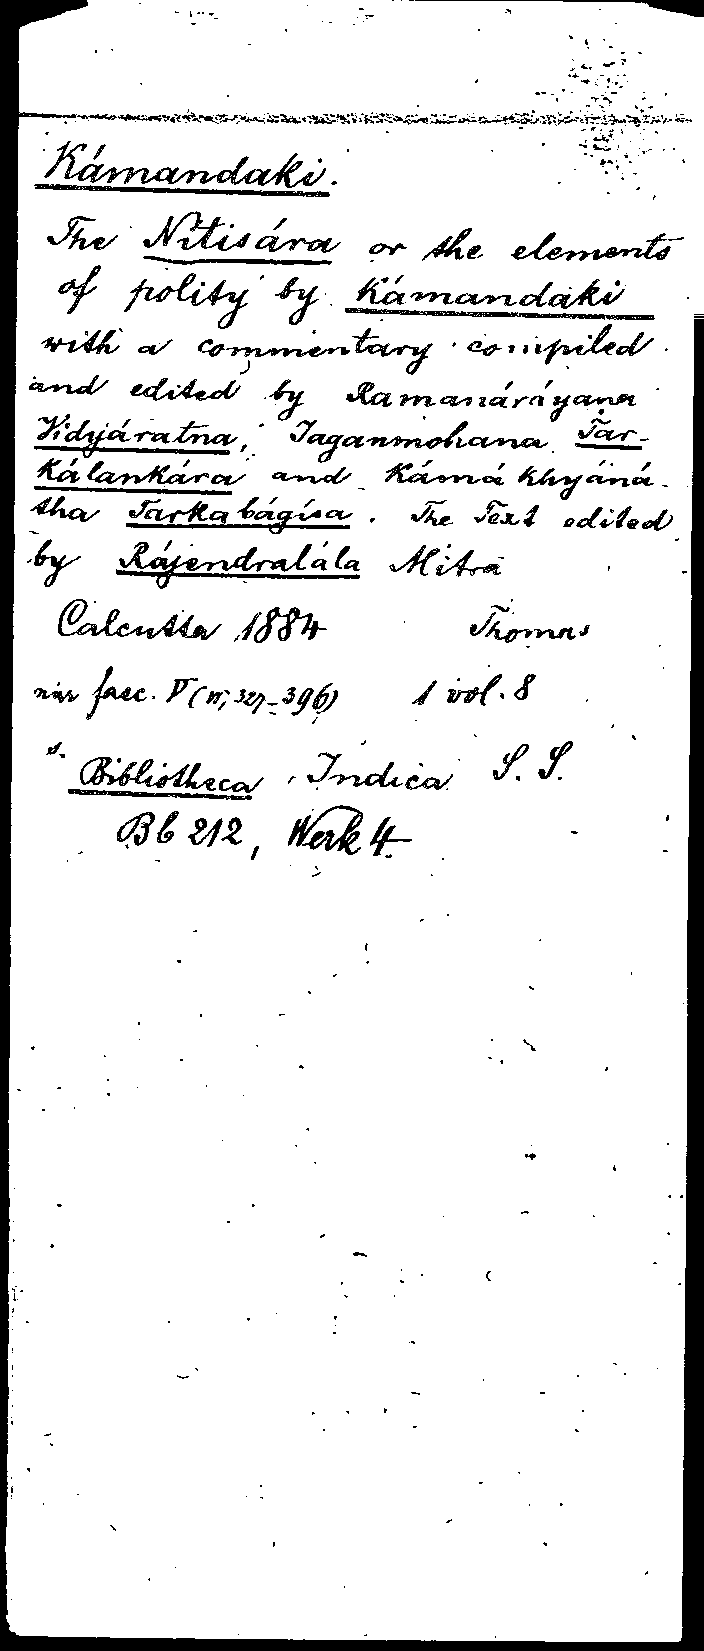 Kámandaki.
The Nítisára or the elements
of polity by Kámandaki
with a commentary compiled
and edited by Ramanáráyana
Vidyáratna, Jaganmohana Tar-
kálankára and Kámákhyáná-
tha Tarkabágísa. The Text edited
by Rájendralála Mitra
Calcutta 1884 Thomas
nur fasc. V (IV, 327-396) 1 vol. 8
s. Bibliotheca Indica S. S.
Bb 212, Werk 4.